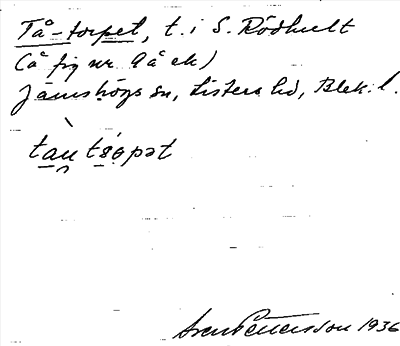 Tå-torpet, t. i S. Rödhult
(å fig nr 9 å ek)
Jämshögs sn, Listers hd, Blek. l.
tau tsopət
Sven Pettersson 1936